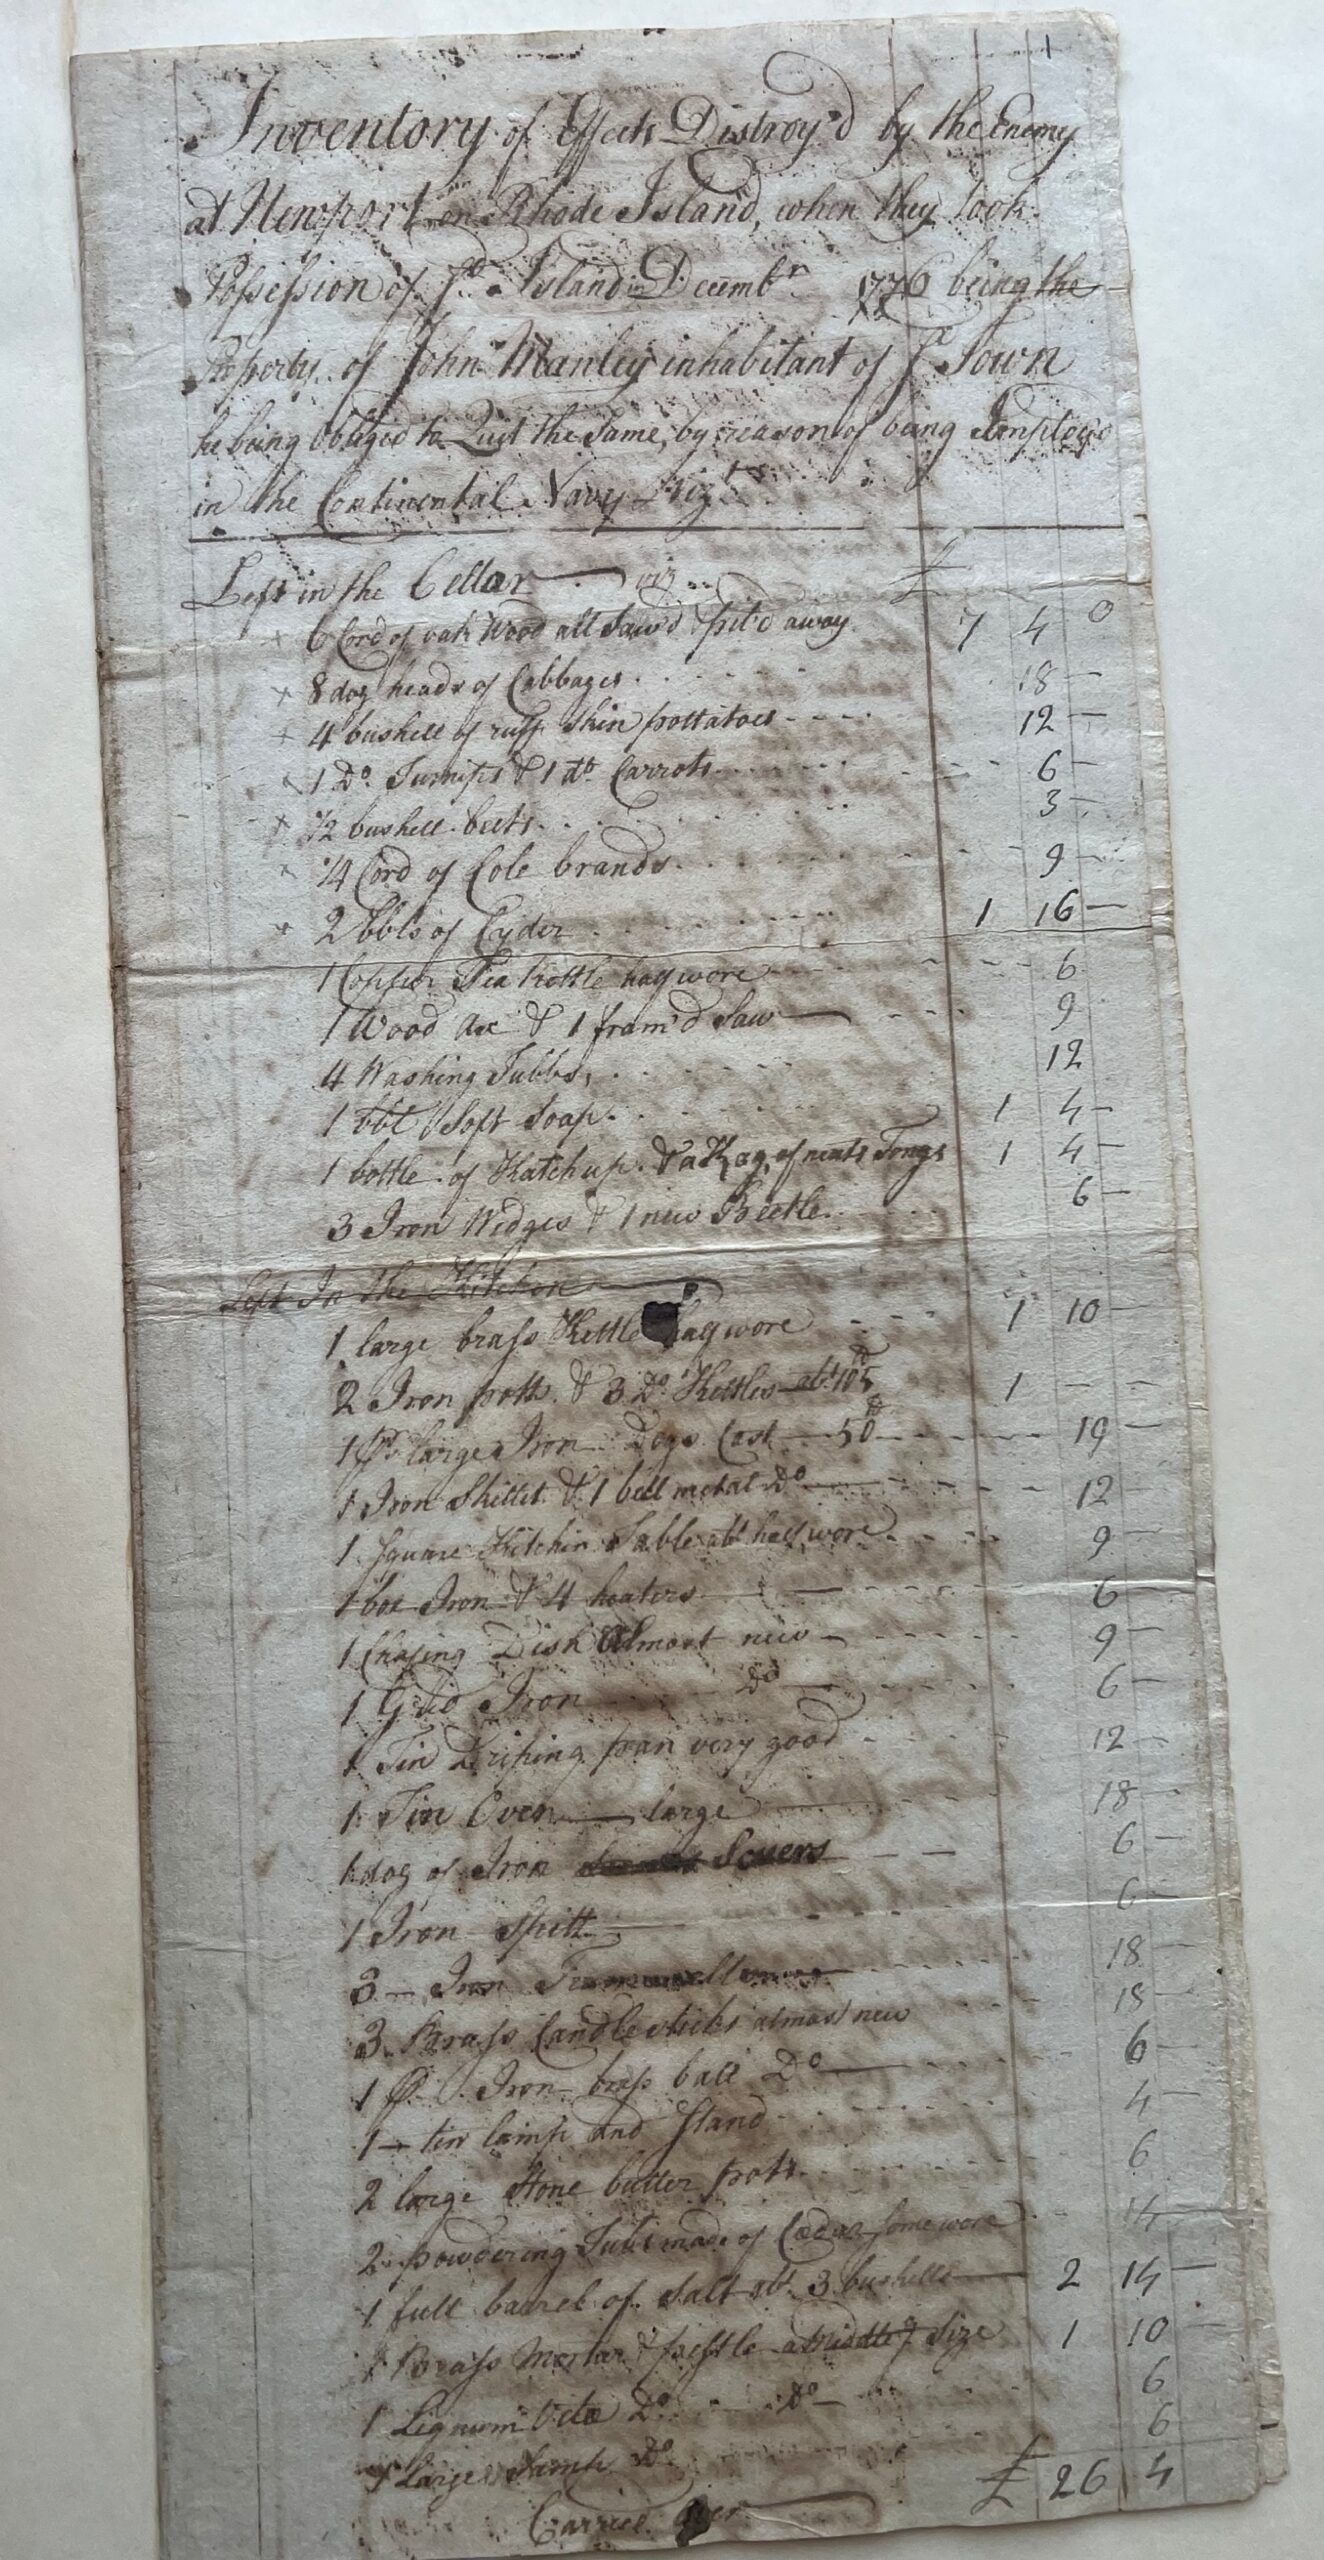 1
Inventory of Effects Distroy'd by the Enemy
at Newport on Rhode Island, when they took
Possession of sd Island in Decembr 1776 being the
Property of John Manley inhabitant of sd Town
he being Obliged to Quit the Same, by reason of being Employd
in the Continental Navy Vizt
Left in the Cellar viz £
6 Cord of oak Wood all Saw'd & pil'd away 7 4 0
8 doz heads of Cabbages 18 —
4 bushell of ruff Skin pottatoes 12 —
1 Do Turnips & 1 do Carrots 6 —
1/2 bushell beets 3 —
1/4 Cord of Cole brands 9 —
2 bbls of Cyder 1 16 —
1 Copper Tea Kettle half wore 6
1 Wood Ax & 1 fram'd Saw 9
4 Washing Tubbs, 12
1 bbl Soft Soap 1 4 —
1 bottle of Katchup & a Kag of neats Tongs 1 4 —
3 Iron Widges & 1 new Beetle 6 —
Left In the Kitchen
1 large brass Kettle half wore 1 10 —
2 Iron potts & 3 Do Kettles abt 1 — —
1 Pr large Iron Dogs Cast 50 19 —
1 Iron Skillet & 1 bell metal Do 12 —
1 Square Kitchin Table abt half wore 9
1 box Iron & 4 heaters 6
1 Chafing Dish Almost new 9 —
1 Grid Iron Do 6 —
1 Tin Driping pan very good 12 —
1 Tin Oven large 18 —
1 doz of Iron Scuers 6 —
1 Iron Spitt 6 —
3 Iron 18 —
3 Brass Candlesticks almost new 18 —
1 Iron brass ball Do 6 —
1 tin lamp and Stand 4 —
2 large Stone butter pots 6
2 powdering Tubs made of Cedar some wore 14
1 full barrel of Salt abt 3 bushells 2 14 —
1 Brass Mortar & pestle a Middleg Size 1 10 —
1 Lignum Vitæ Do Do 6
1 Large Samp Do 6
Carried over £ 26 4